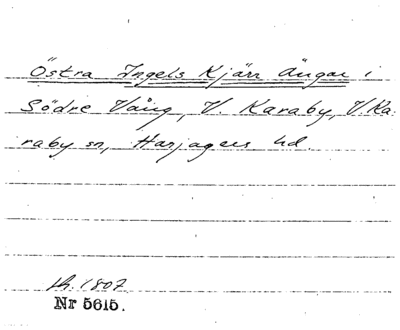 Östra Ingels Kjärr Ängar i
Södre Vång, V. Karaby, V. Ka-
raby sn, Harjagers hd.
sh. 1807
Nr 5615.